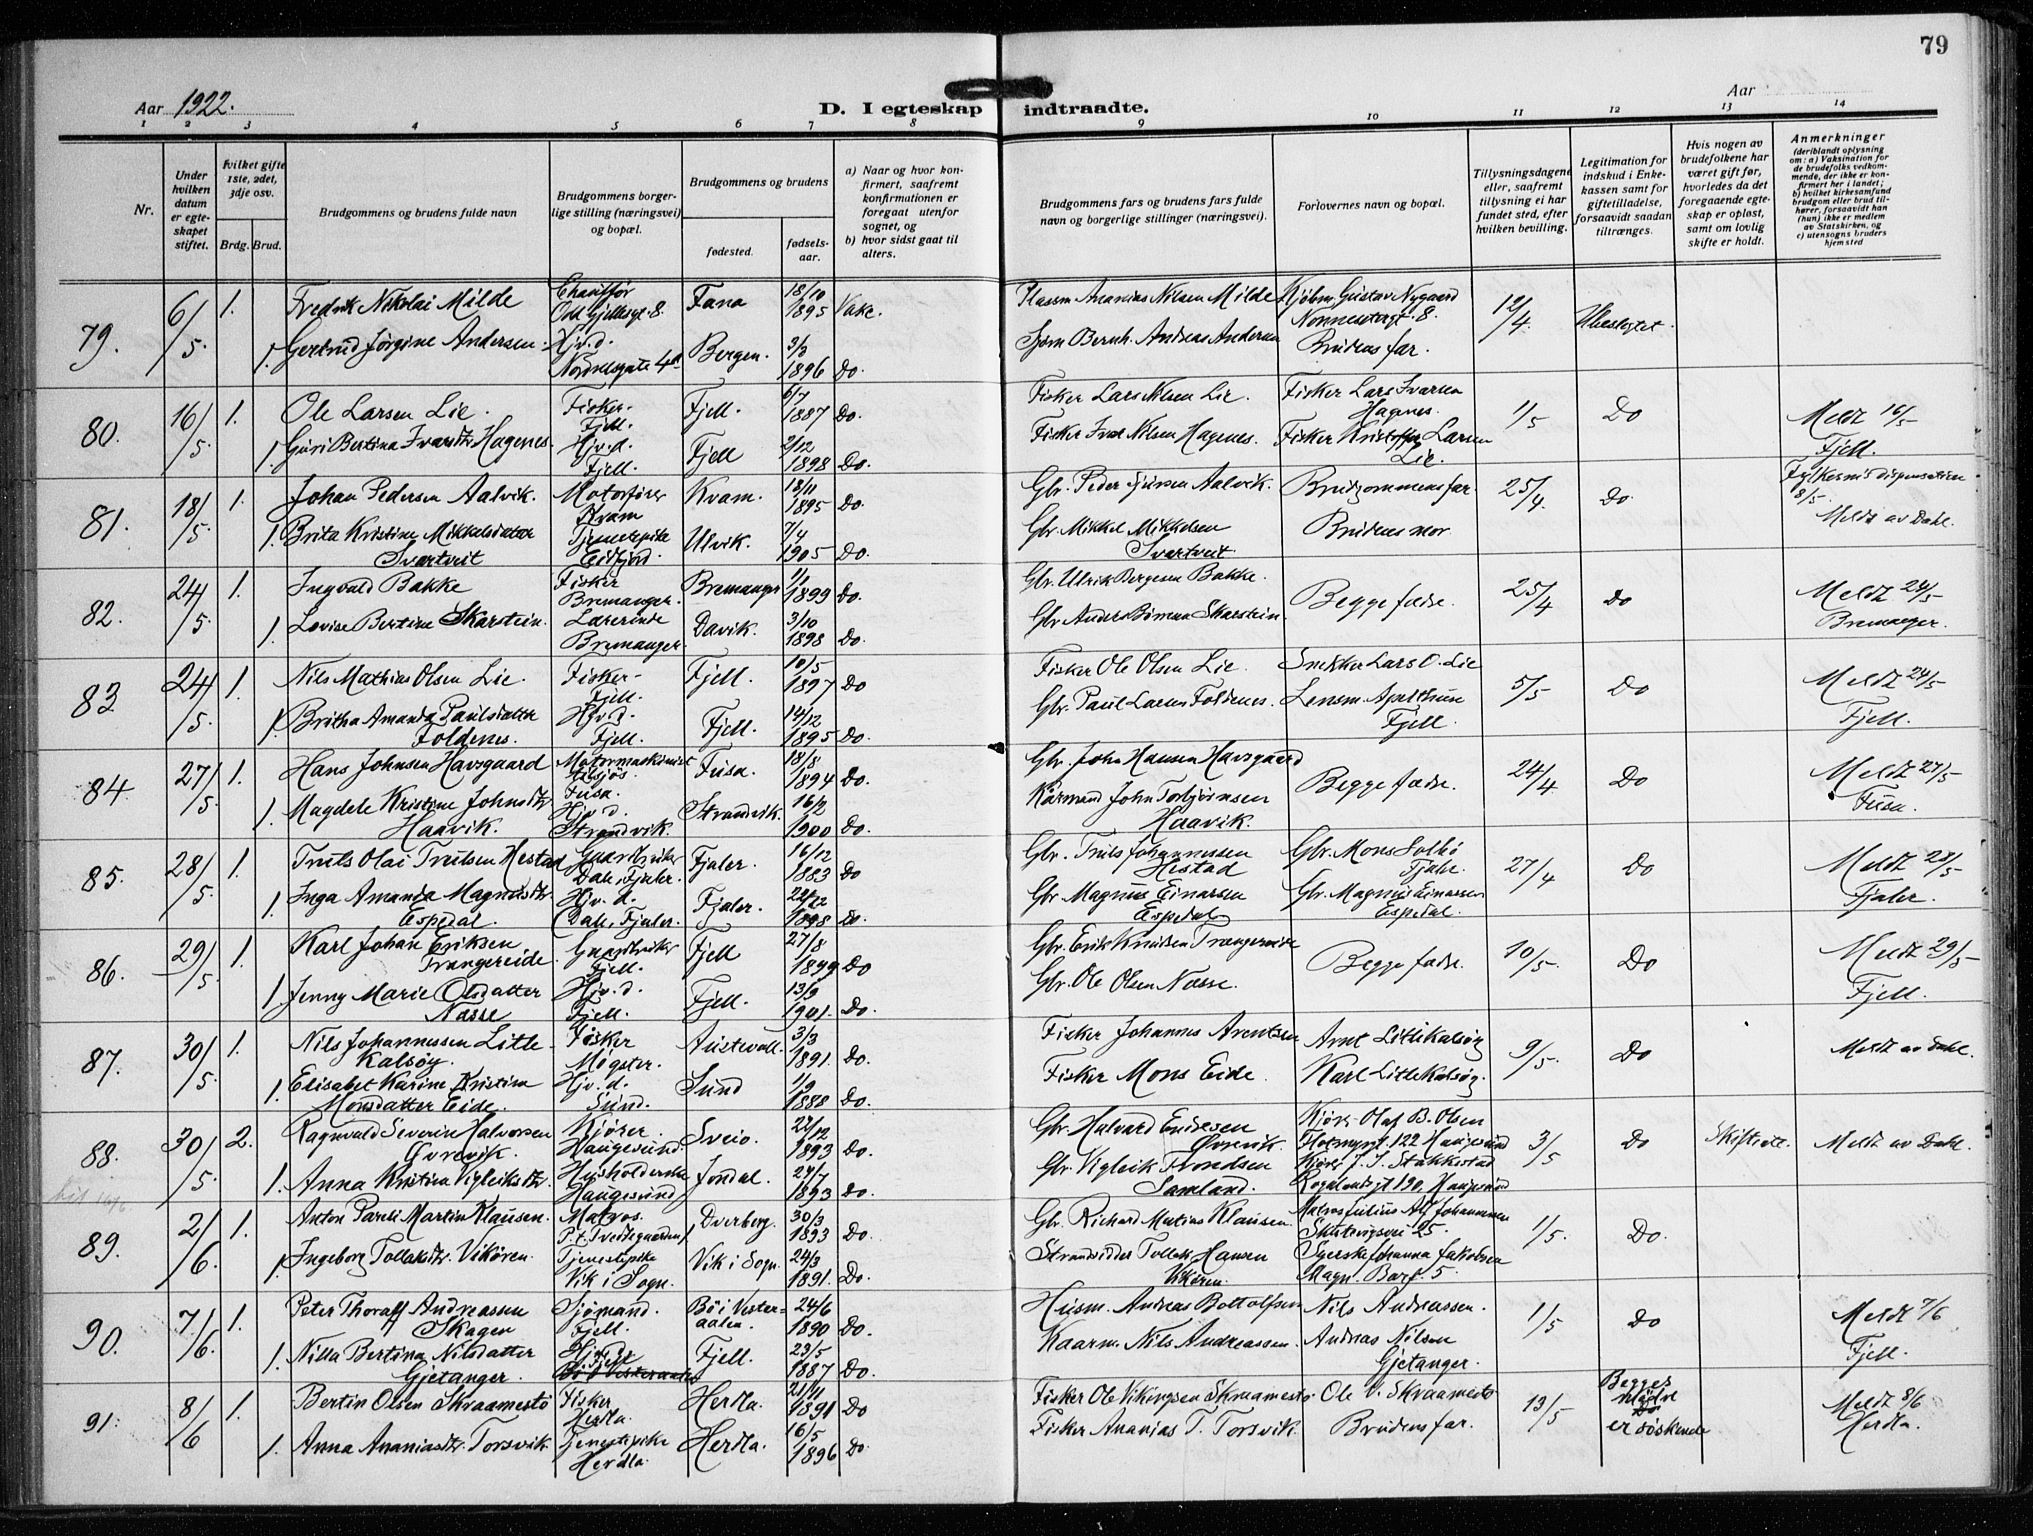 79
Aar 1922.
D. I egteskap indtraadte.
Aar
1 2 3 4 5 6 7 8 9 10 11 12 13 14
Nr.
Under hvilken datum er egteskapet stiftet.
hvilket gifte 1ste, 2det, 3dje osv.
Brdg. Brud.
Brudgommens og brudens fulde navn
Brudgommens borgerlige stilling (næringsvei) og bopæl.
Brudgommens og brudens
fødested. fødselsaar.
a) Naar og hvor konfirmert, saafremt konfirmationen er foregaat utenfor sognet, og
b) hvor sidst gaat til alters.
Brudgommens fars og brudens fars fulde navn og borgerlige stillinger (næringsvei).
Forlovernes navn og bopæl.
Tillysningsdagene eller, saafremt tillysning ei har fundet sted, efter hvilken bevilling.
Legitimation for indskud i Enkekassen samt for giftetilladelse, forsaavidt saadan tiltrænges.
Hvis nogen av brudefolkene har været gift før, hvorledes da det foregaaende egteskap er opløst, samt om lovlig skifte er holdt.
Anmerkninger
(deriblandt oplysning om: a) Vaksination for de brudefolks vedkommende, der ikke er konfirmert her i landet; b) hvilket kirkesamfund brudgom eller brud tilhører, forsaavidt han (hun) ikke er medlem av Statskirken, og c) utensogns bruders hjemsted
79. 6/5 1. Fredrik Nikolai Milde Chauffør Fana 18/10 1895 Vake. Plassm Ananias Nilsen Milde Kjøbm Gustav Nygaard Nonnestergt. 8. 12/4. Ubeslegtet.
1. Gertrud Jørgine Andersen Hjv.d. Bergen. 3/3 1896 Do. Sjøm Bernh. Andreas Andersen Brudens far.
80. 16/5 1. Ole Larsen Lie. Fisker. Fjell. Fjell. 6/7 1887 Do. Fisker Lars Nilsen Lie. Fisker Lars Ivarsen Hagenes. 1/5 Do Meldt 16/5 Fjell.
1. Guri Bertina Ivarsdtr. Hagenes. Hjv.d. Fjell. Fjell 2/12 1898 Do. Fisker Ivar Nilsen Hagenes. Fisker Kristoffer Larsen Lie.
81. 18/5 1. Johan Pedersen Aalvik. Motorfører Kvam Kvam. 18/11 1895 Do. Gbr. Peder Aalvik. Brudgommens far. 25/4. Do. Fylkesm's dispensation 8/5. Meldt av Dahl.
1. Brita Kristine Mikkelsdatter Svartveit Tjenestepike Eidfjord. Ulvik. 7/4 1905 Do. Gbr. Mikkel Mikkelsen Svartveit Brudens mor
82. 24/5. 1. Ingvald Bakke Fisker Bremanger. Bremanger 1/1 1899 Do. Gbr. Ulrik Bergesen Bakke. Begge fædre. 25/4 Do Meldt 24/5 Bremanger.
1. Lovise Bertine Skarstein. Lærerinde Bremanger. Davik. 3/10 1898 Do. Gbr Anders Skarstein.
83 24/5. 1. Nils Mathias Olsen Lie. Fisker Fjell. Fjell. 10/5 1897 Do Fisker Ole Olsen Lie. Snekker Lars O. Lie 5/5 Do Meldt 24/5 Fjell.
1. Britha Amanda Paulsdatter Foldenes. Hjv.d. Fjell. Fjell. 14/12 1895 Do. Gbr. Paul Larsen Foldenes. Lensm. Apelthun Fjell.
84. 27/5. 1. Hans Johnsen Havsgaard Motormaskinist Fusa. Fusa. 18/8 1894 Do. Gbr. John Hansen Havsgaard Begge fædre. 24/4 Do Meldt 27/5 Fusa.
1. Magdele Kristine Johnsdtr. Haavik. Hjv.d. Strandvik. Strandvik. 16/2 1900 Do. Kårmand John Torbjørnsen Haavik.
85. 28/5 1. Truls Olai Trulsen Hestad Gaardbruker Dale, Fjaler. Fjaler. 16/12 1883 Do Gbr. Truls Johannessen Hestad Gbr. Mons Solbø Fjaler. 27/4 Do Meldt 28/5 Fjaler.
1. Inga Amanda Magnusdtr. Espedal. Hjv.d. Dale, Fjaler. Fjaler. 22/12 1898 Do. Gbr. Magnus Einarsen Espedal Gbr. Magnus Einarsen Espedal.
86. 29/5 1. Karl Johan Eriksen Trangereide. Gaardbruker Fjell. Fjell 27/8 1899 Do Gbr. Erik Knudsen Trangereide Begge fædre. 10/5. Do Meldt 29/5 Fjell.
1. Jenny Marie Olsdatter Næsse Hjv.d. Fjell. Fjell. 13/9 1901. Do. Gbr. Ole Olsen Næsse.
87. 30/5 1. Nils Johannessen Litle Kalsøy. Fisker Møgster. Austevoll. 3/3 1891. Do. Fisker Johannes Arentsen Arnt Litlekalsøy 9/5. Do Meldt av Dahl.
1. Elisabet Karine Kristine Monsdatter Eide. Hjv.d. Sund. Sund 1/9 1888 Do. Fisker Mons Eide. Karl Litlekalsøy.
88. 30/5 2. Ragnvald Severin Halvorsen Øvrevik. Kjører. Haugesund. Sveio. 22/12 1893 Do. Gbr. Halvard Endresen Øvrevik. Kjører Olaf B. Olsen Flotmyrgt. 122 Haugesund 3/5 Do Skiftede. Meldt av Dahl.
1. Anna Kristina Vigleiksdtr. Husholderske Haugesund Jondal. 24/7 1893 Do. Gbr. Vigleik Trondsen Samland. Kjører J. J. Stakkestad Rogalandsgt 190, Haugesund
89. 2/6 1. Anton Pareli Martin Klausen. Matros. P.t. Dverberg. 30/3 1893 Do. Gbr. Richard Matias Klausen. Matros Julius Alf Johannessen Skuteviksvei 25. 1/5. Do.
1. Ingeborg Tollaksdtr. Vikøren. Tjenestepike Vik i Sogn. Vik i Sogn. 24/3 1891. Do. Strandsidder Tollak Hansen Vikøren. Syerske Johanna Jakobsen Magn. Barf. 5.
90. 7/6. 1. Peter Thoralf Andreassen Skagen Sjömand. Fjell. Bö i Vesteraalen. 24/6 1890 Do. Husm. Andreas Bottolfsen Nils Andreassen. 1/5 Do Meldt 7/6 Fjell.
1. Nilla Bertina Nilsdatter Gjetanger. Hjv.d. Fjell Bö i Vesteraalen Fjell. 23/5 1887 Do. Kaarm. Nils Andreassen. Andreas Nilsen Gjetanger.
91. 8/6 1. Bertin Olsen Skraamestö Fisker Herdla. Herdla. 21/11 1891 Do Fisker Ole Vikingsen Skraamestö. Ole V. Skraamestö 13/5 Begges mødre Do er søskende Meldt 8/6 Herdla.
1. Anna Ananiasdtr. Torsvik. Tjenestepike Herdla. Herdla. 16/5 1896 Do. Fisker Ananias T. Torsvik. Brudens far.